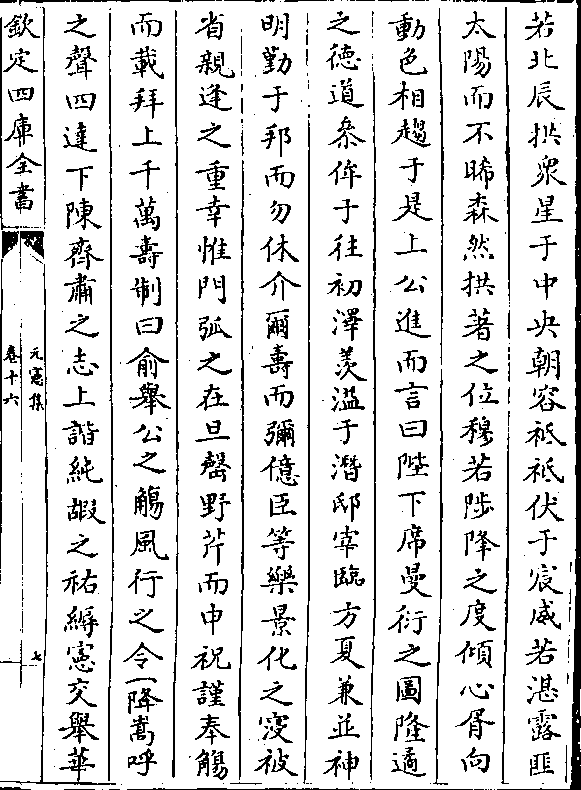 若北辰拱衆星于中央朝容祗祗伏于宸威若湛露匪
太陽而不晞森然拱著之位穆若陟降之度傾心胥向
動色相趨于是上公進而言曰陛下席曼衍之圖隆遹
之德道叅侔于往初澤羨溢于潛邸宰臨方夏兼並神
明勤于邦而勿休介爾壽而彌億臣等樂景化之寖被
省親逢之重幸惟門弧之在旦罄野芹而申祝謹奉觴
而載拜上千萬壽制曰俞舉公之觴風行之令一降嵩呼
之聲四達下陳齊肅之志上諧純嘏之祐縟憲交舉華
欽定四庫全書
元憲集
卷十六
七